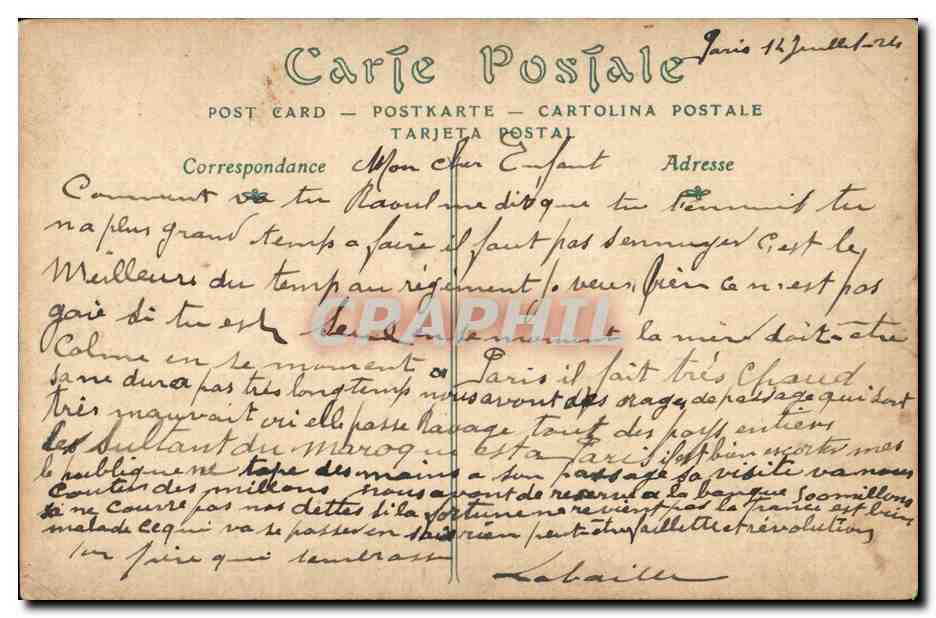 Paris 14 Juillet 26
Carte Postale
POST CARD — POSTKARTE — CARTOLINA POSTALE
TARJETA POSTAL
Correspondance Mon cher Enfant Adresse
Comment va tu Raoul me dis que tu t'ennuit tu
na plus grand temps a faire il faut pas s'ennuyer c'est le
Meilleure du temp au régiment je veus bien ce n'est pas
gaie si tu est seul en se moment la mer doit-etre
Calme en se moment a Paris il fait très chaud
sa ne dura pas très longtemp nous avont des orages de passage qui sont
très mauvait ou elle passe Ravage tout des pays entiers
les Sultant du maroque est a Paris il est bien escorter mes
le publique ne tape des mains a son passage sa visite va nous
couter des millons nous avont de reserve a la banque 500 millons
sa ne couvre pas nos dettes si la fortune ne revient pas la france est bien
malade ce qui va se passer en rien peut-etre faillitte et révolution
ton père qui t'embrasse
Labaille
CPAPHIL